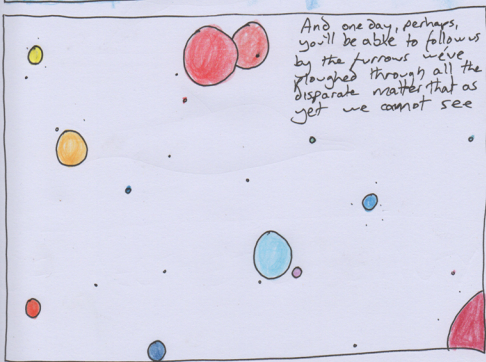 And one day, perhaps,
you'll be able to follow us
by the furrows we've
ploughed through all the
disparate matter that as
yet we cannot see